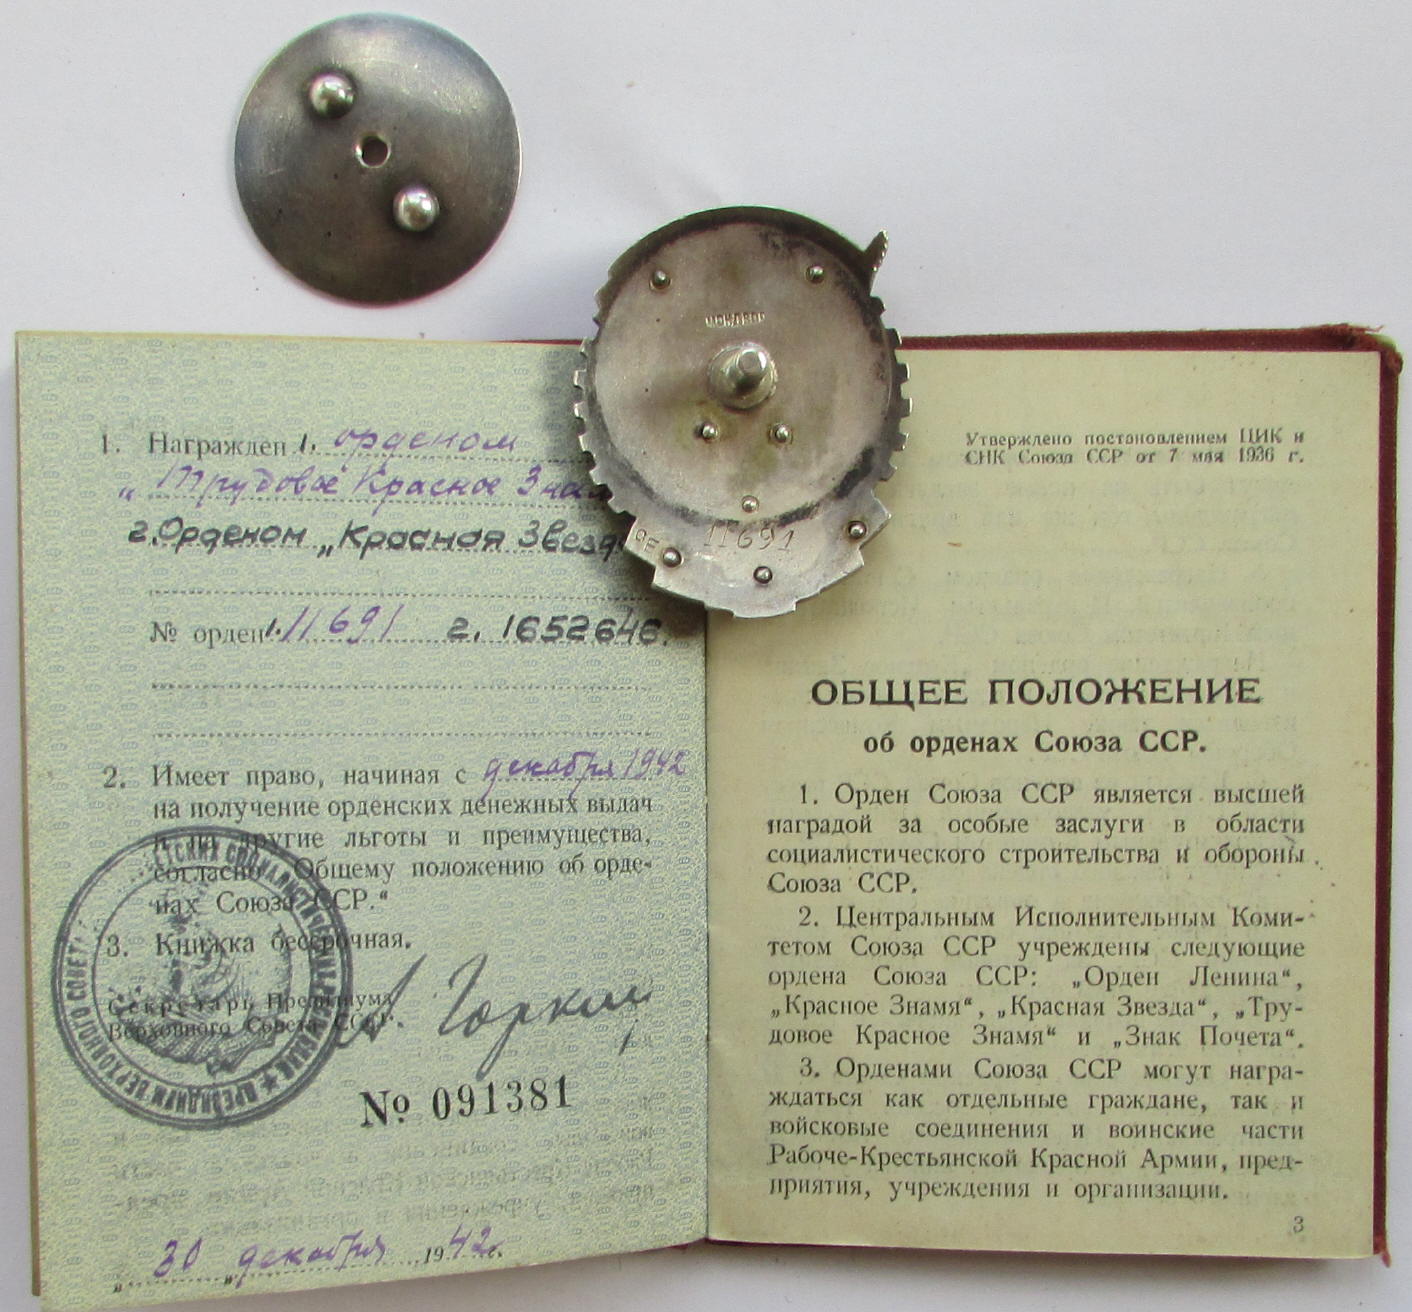 МОНДВОР
11691
1. Награжден 1. орденом
„Трудовое Красное
2. Орденом „Красная
№ орден 1. 11691 2. 1652646.
2. Имеет право, начиная с декабря 1942
на получение орденских денежных выдач
и на другие льготы и преимущества,
согласно „Общему положению об орде-
нах Союза ССР.“
3. Книжка бессрочная.
Секретарь Президиума
Верховного Совета СССР
А. Горкин
ПРЕЗИДИУМ ВЕРХОВНОГО СОВЕТА
№ 091381
„30„ декабря 1942 г.
Утверждено постановлением ЦИК и
СНК Союза ССР от 7 мая 1936 г.
ОБЩЕЕ ПОЛОЖЕНИЕ
об орденах Союза ССР.
1. Орден Союза ССР является высшей
наградой за особые заслуги в области
социалистического строительства и обороны
Союза ССР.
2. Центральным Исполнительным Коми-
тетом Союза ССР учреждены следующие
ордена Союза ССР: „Орден Ленина“,
„Красное Знамя“, „Красная Звезда“, „Тру-
довое Красное Знамя“ и „Знак Почета“.
3. Орденами Союза ССР могут награ-
ждаться как отдельные граждане, так и
войсковые соединения и воинские части
Рабоче-Крестьянской Красной Армии, пред-
приятия, учреждения и организации.
3